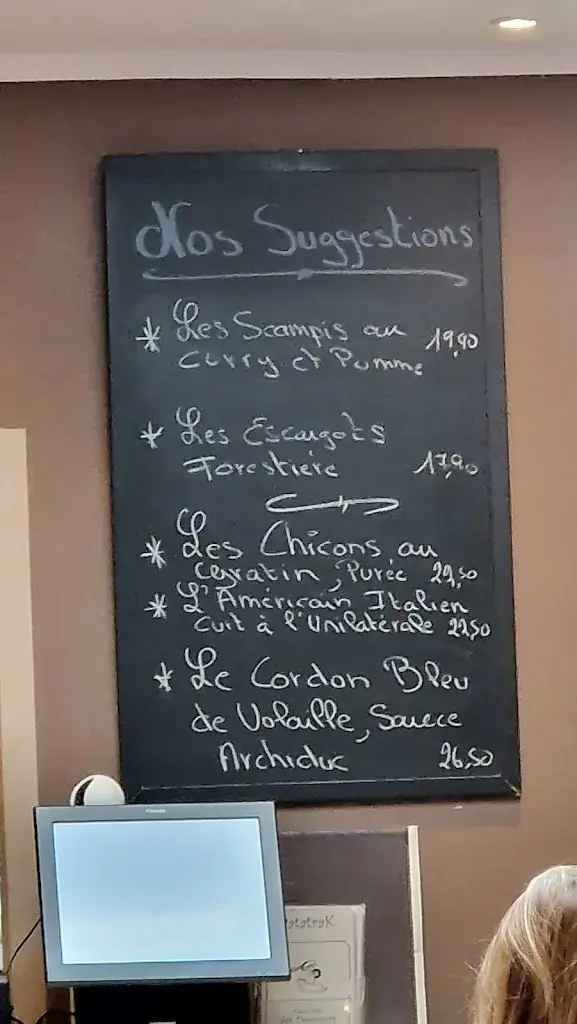 Nos Suggestions
* Les Scampis au 19,90
Curry et Pomme
* Les Escargots
Forestière 17,90
* Les Chicons au
Gratin, Purée 29,50
* L'Américain Italien
Cuit à l'Unilatérale 22,50
* Le Cordon Bleu
de Volaille, Sauce
Archiduc 26,50